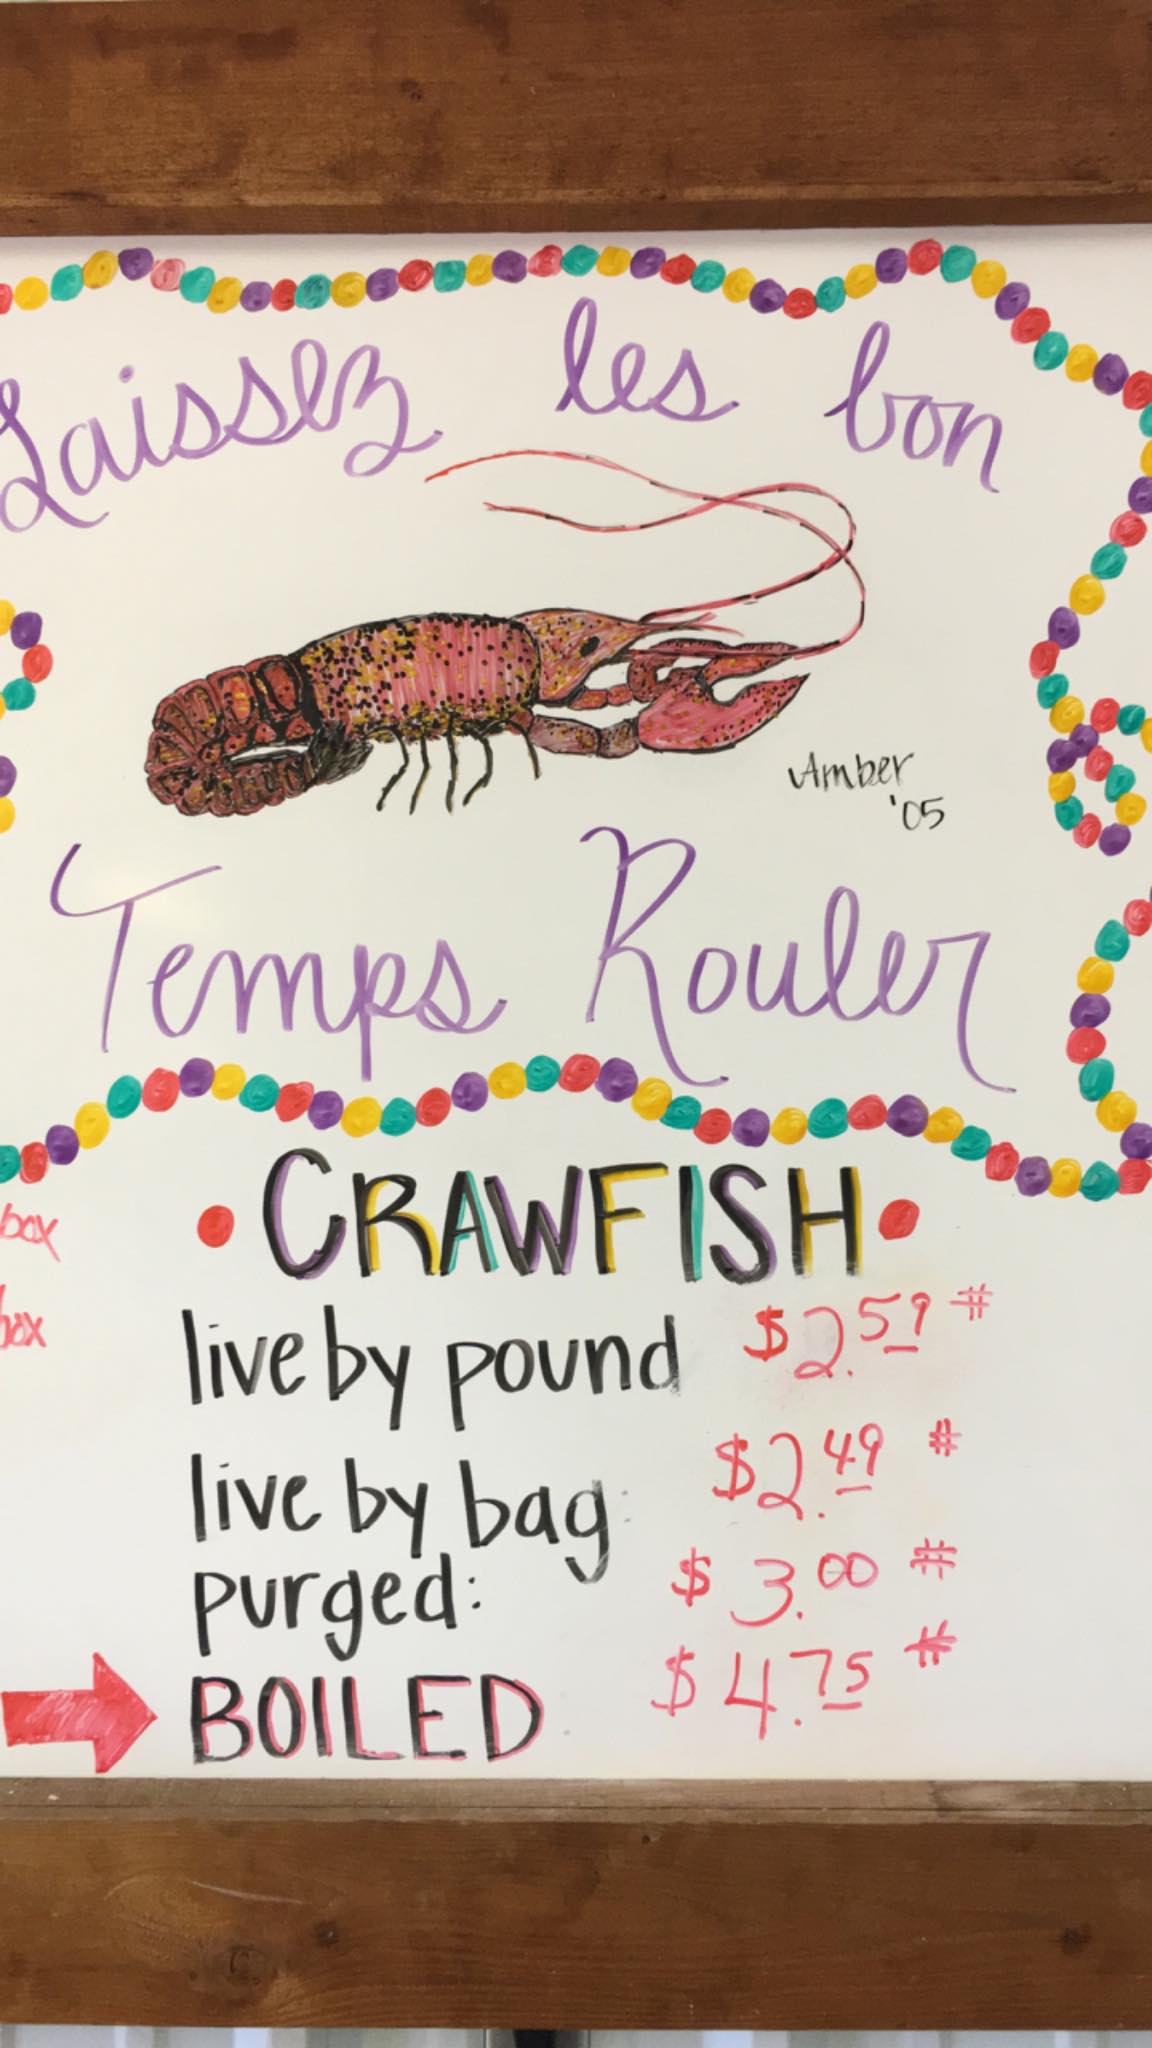 Laissez les bon
Amber
'05
Temps Rouler
box
box
• CRAWFISH •
live by pound $2.59 #
live by bag: $2.49 #
purged: $3.00 #
BOILED $4.75 #